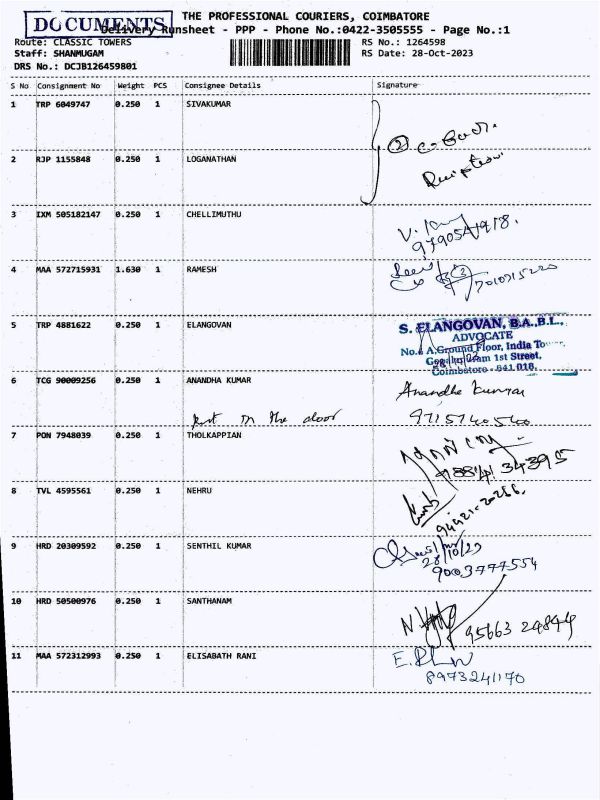 DOCUMENTS
THE PROFESSIONAL COURIERS, COIMBATORE
Delivery Runsheet - PPP - Phone No.:0422-3505555 - Page No.:1
Route: CLASSIC TOWERS RS No.: 1264598
Staff: SHANMUGAM RS Date: 28-Oct-2023
DRS No.: DCJB126459801
S No Consignment No Weight PCS Consignee Details Signature
1 TRP 6049747 0.250 1 SIVAKUMAR
2 RJP 1155848 0.250 1 LOGANATHAN
3 IXM 505182147 0.250 1 CHELLIMUTHU
4 MAA 572715931 1.630 1 RAMESH
7010715220
5 TRP 4881622 0.250 1 ELANGOVAN
S. ELANGOVAN, B.A.,B.L.,
ADVOCATE
No.6 A,Ground Floor, India
1st Street,
Coimbatore - 641 018.
6 TCG 90009256 0.250 1 ANANDHA KUMAR Anandha kumar
put in the door 9715740540
7 PON 7948039 0.250 1 THOLKAPPIAN
34395
8 TVL 4595561 0.250 1 NEHRU
9 HRD 20309592 0.250 1 SENTHIL KUMAR
28/10/23
9003777554
10 HRD 50500976 0.250 1 SANTHANAM
95663 24844
11 MAA 572312993 0.250 1 ELISABATH RANI
8973241170